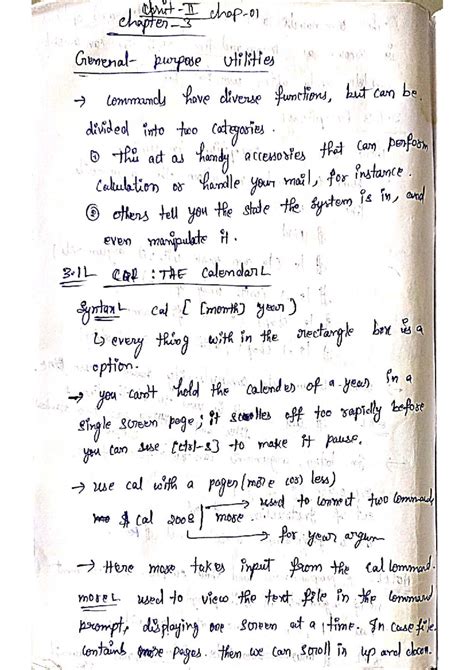 Unit-II chap-01
chapter-3
General- purpose utilities
→ commands have diverse functions, but can be
divided into two categories.
① this act as handy accessories that can perform
Calculation or handle your mail, for instance.
② others tell you the state the system is in, and
even manipulate it.
3.1 CAL : THE Calendar
Syntax cal [ [month] year )
↳ every thing with in the rectangle box is a
option.
→ you can't hold the calender of a year in a
single screen page; it scrolles off too rapidly before
you can use [ctrl-s] to make it pause.
→ use cal with a pager (more (or) less)
$ cal 2008 | more → used to connect two commands
→ for year argum
→ Here more takes input from the cal command.
more used to view the text file in the command
prompt, displaying one screen at a time. In case file
contains more pages. then we can scroll in up and down.